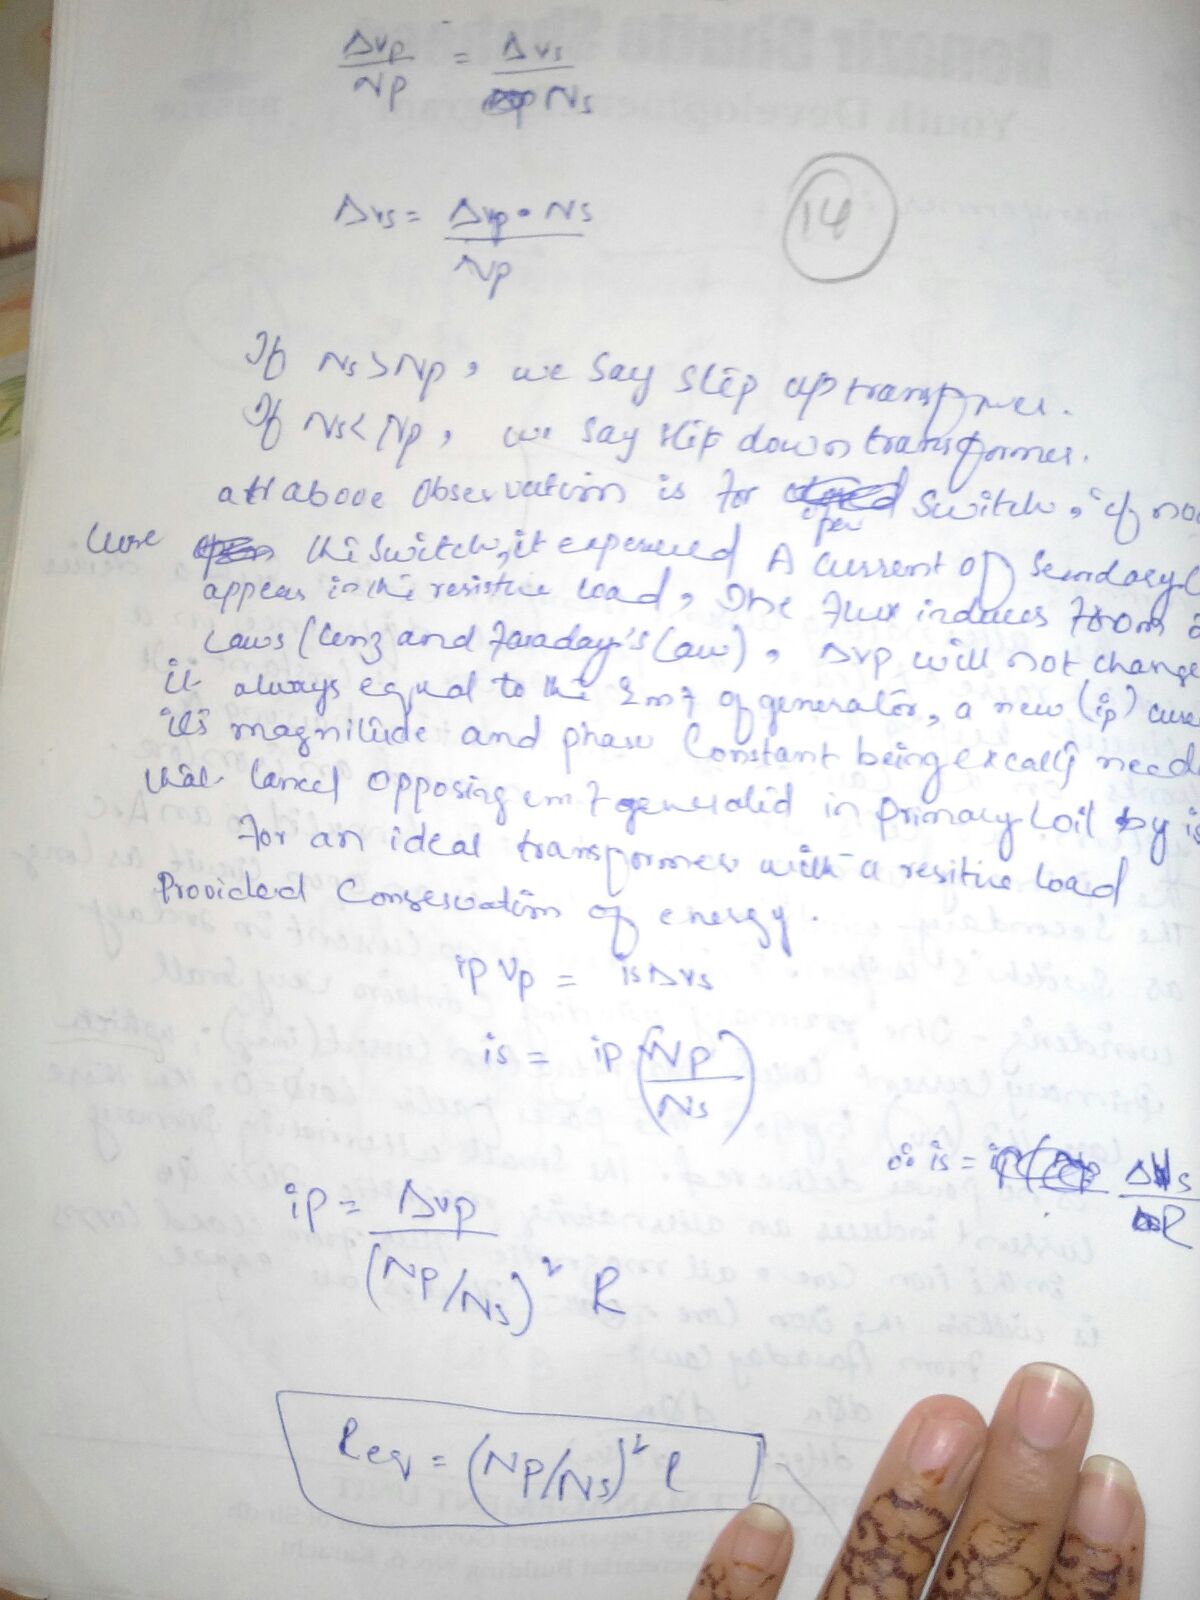 Δvp / Np = Δvs / Ns
14
Δvs = Δvp • Ns / Np
If Ns > Np, we say step up transformer.
If Ns < Np, we say step down transformer.
all above observation is for open switch, if no
the switch, it A current of
appears in the resistive load, The flux induces from
Laws (Lenz and Faraday's Law), Δvp will not change
it always equal to the Emf of generator, a new (ip)
its magnitude and phase constant being need
that cancel opposing emf generated in primary coil by is
For an ideal transformer with a resitive load
Provided Conservation of energy.
ip vp = is Δvs
is = ip (Np / Ns)
∴ is = Δvs / R
ip = Δvp / (Np/Ns)² R
Req = (Np/Ns)² R